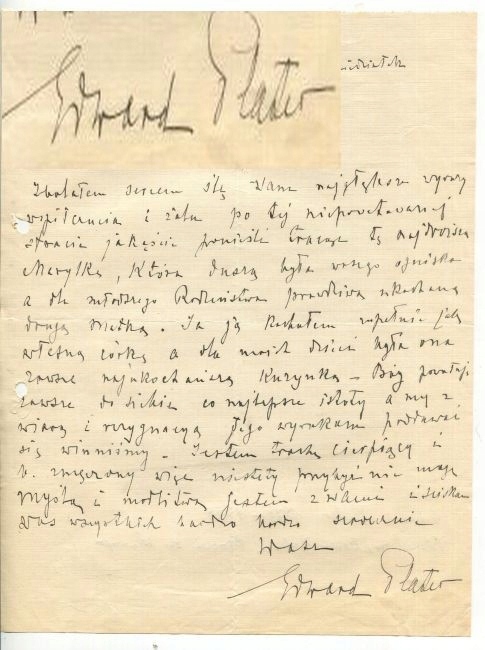 Edward Plater
Zbolałem sercem ślę Wam najgłębsze wyrazy
współczucia i żalu po tej niepowetowanej
stracie jakąście ponieśli tracąc tę najdroższą
Marylkę, która duszą była waszego ogniska
a dla młodszego Rodzeństwa prawdziwą ukochaną
drugą Matką. Ja ją kochałem zupełnie jak
własną córkę a dla moich dzieci była ona
zawsze najukochańszą Kuzynką – Bóg powołuje
zawsze do siebie co najlepsze istoty a my z
wiarą i rezygnacją Jego wyrokom poddawać
się winniśmy – Jestem trochę cierpiący i
b. zmęczony więc niestety przybyć nie mogę
Myślą i modlitwą jestem z Wami i ściskam
Was wszystkich bardzo bardzo serdecznie
Wasz
Edward Plater